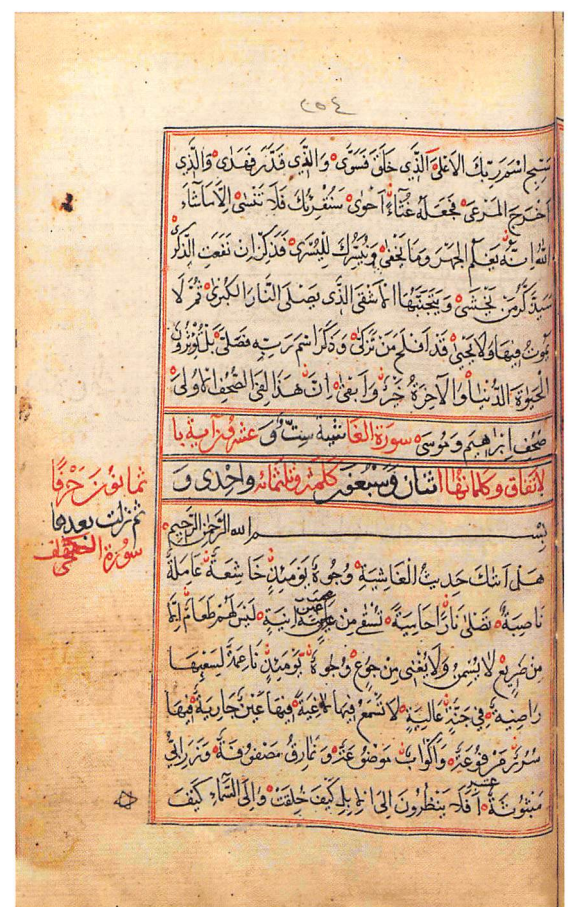 ٢٥٤
سبح اسم ربك الاعلى الذي خلق فسوى والذي قدر فهدى والذي
اخرج المرعى فجعله غثاء احوى سنقرئك فلا تنسى الا ما شاء
الله انه يعلم الجهر وما يخفى ونيسرك لليسرى فذكر ان نفعت الذكرى
سيذكر من يخشى ويتجنبها الاشقى الذي يصلى النار الكبرى ثم لا
يموت فيها ولا يحيى قد افلح من تزكى وذكر اسم ربه فصلى بل تؤثرون
الحيوة الدنيا والآخرة خير وابقى ان هذا لفي الصحف الاولى
صحف ابرهيم وموسى سورة الغاشية ست وعشرون آية با
لاتفاق وكلماتها اثنان وسبعون كلمة وثلثمائة واحدى و
ثمانون حرفا
ثم نزلت بعدها
سورة الكهف
بسم الله الرحمن الرحيم
هل اتيك حديث الغاشية وجوه يومئذ خاشعة عاملة
ناصبة تصلى نارا حامية تسقى من عين آنية ليس لهم طعام الا
من ضريع لا يسمن ولا يغنى من جوع وجوه يومئذ ناعمة لسعيها
راضية في جنة عالية لا تسمع فيها لاغية فيها عين جارية فيها
سرر مرفوعة واكواب موضوعة ونمارق مصفوفة وزرابي
مبثوثة افلا ينظرون الى الابل كيف خلقت والى السماء كيف